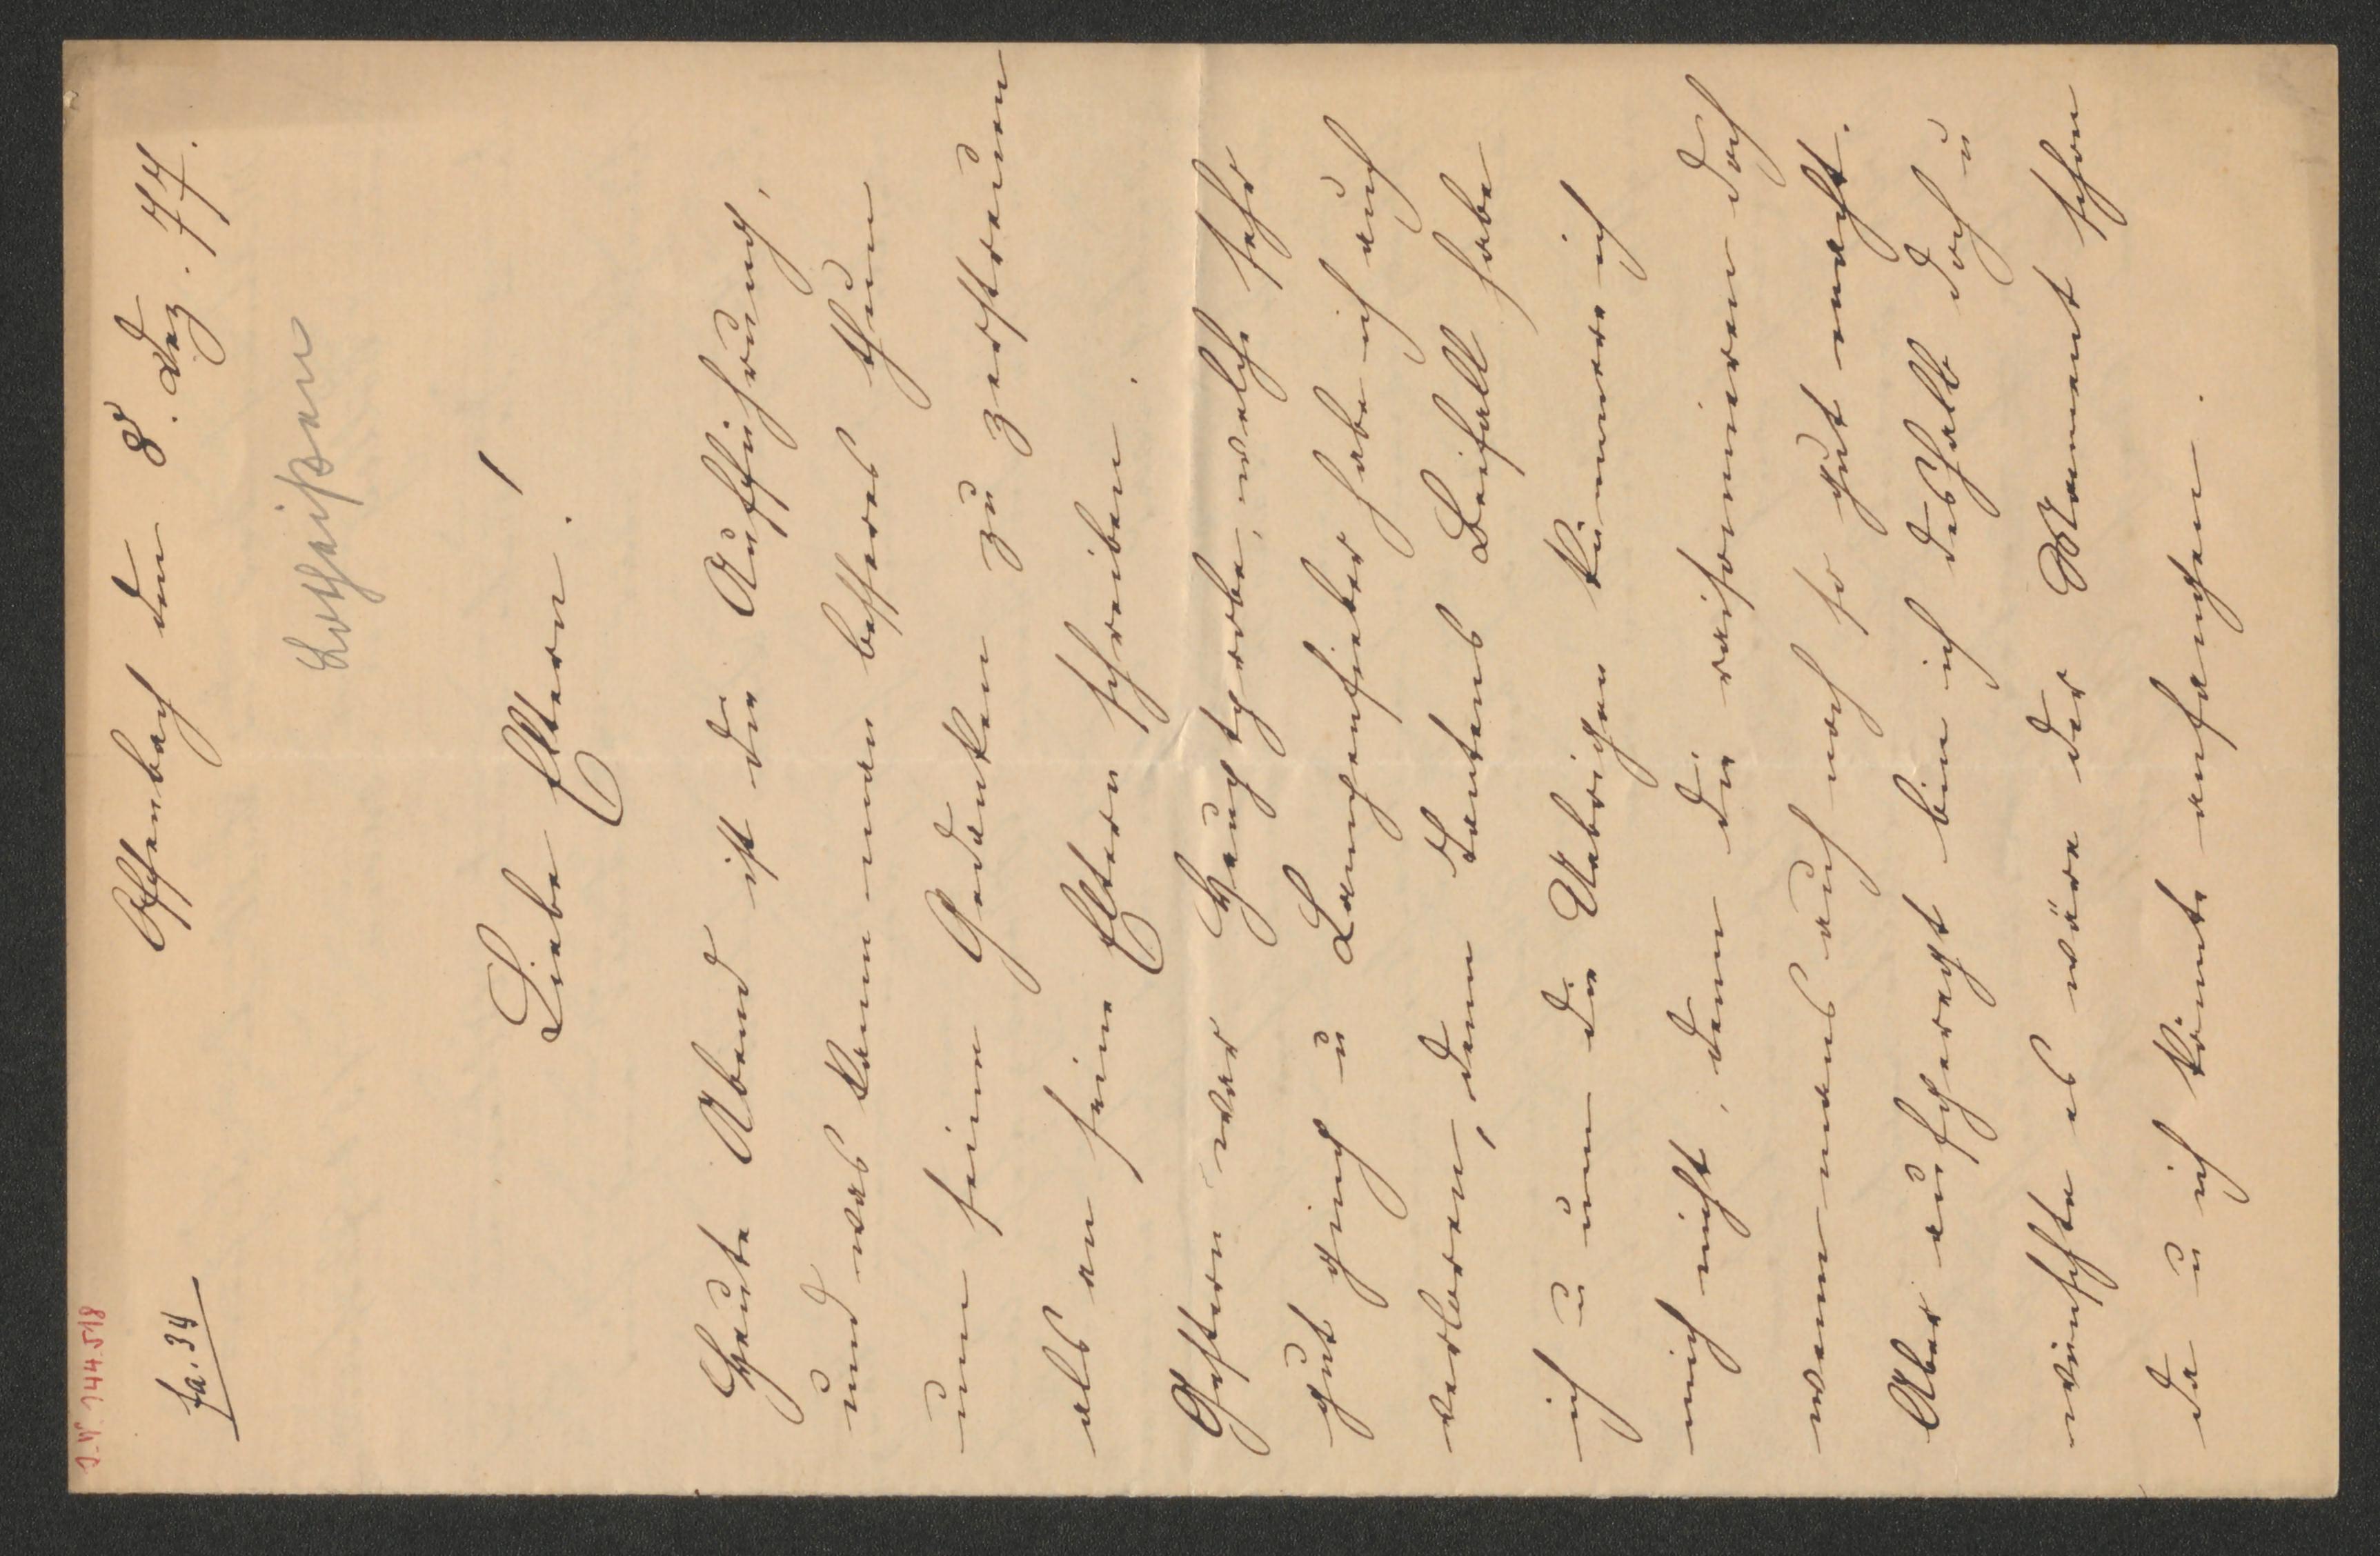 J.N. 144.518
fa. 34
Offenbach den 8. Dez. 77.
Lotheißen
Liebe Eltern!
Heute Abend ist die Aufführung,
und was kann man besseres thun
um seine Gedanken zu zerstreuen
als an seine Eltern schreiben.
Gestern war Hauptprobe, welche sehr
gut ging u Lampenfieber habe ich auch
verloren, denn Tantens Beifall habe
ich u um die Uebrigen kümmere ich
mich nicht, denn die raisonnieren doch
wenn mans auch noch so gut macht.
Aber aufgeregt bin ich deshalb doch u
wünschte es wäre der Moment schon
da u ich könnte anfangen.